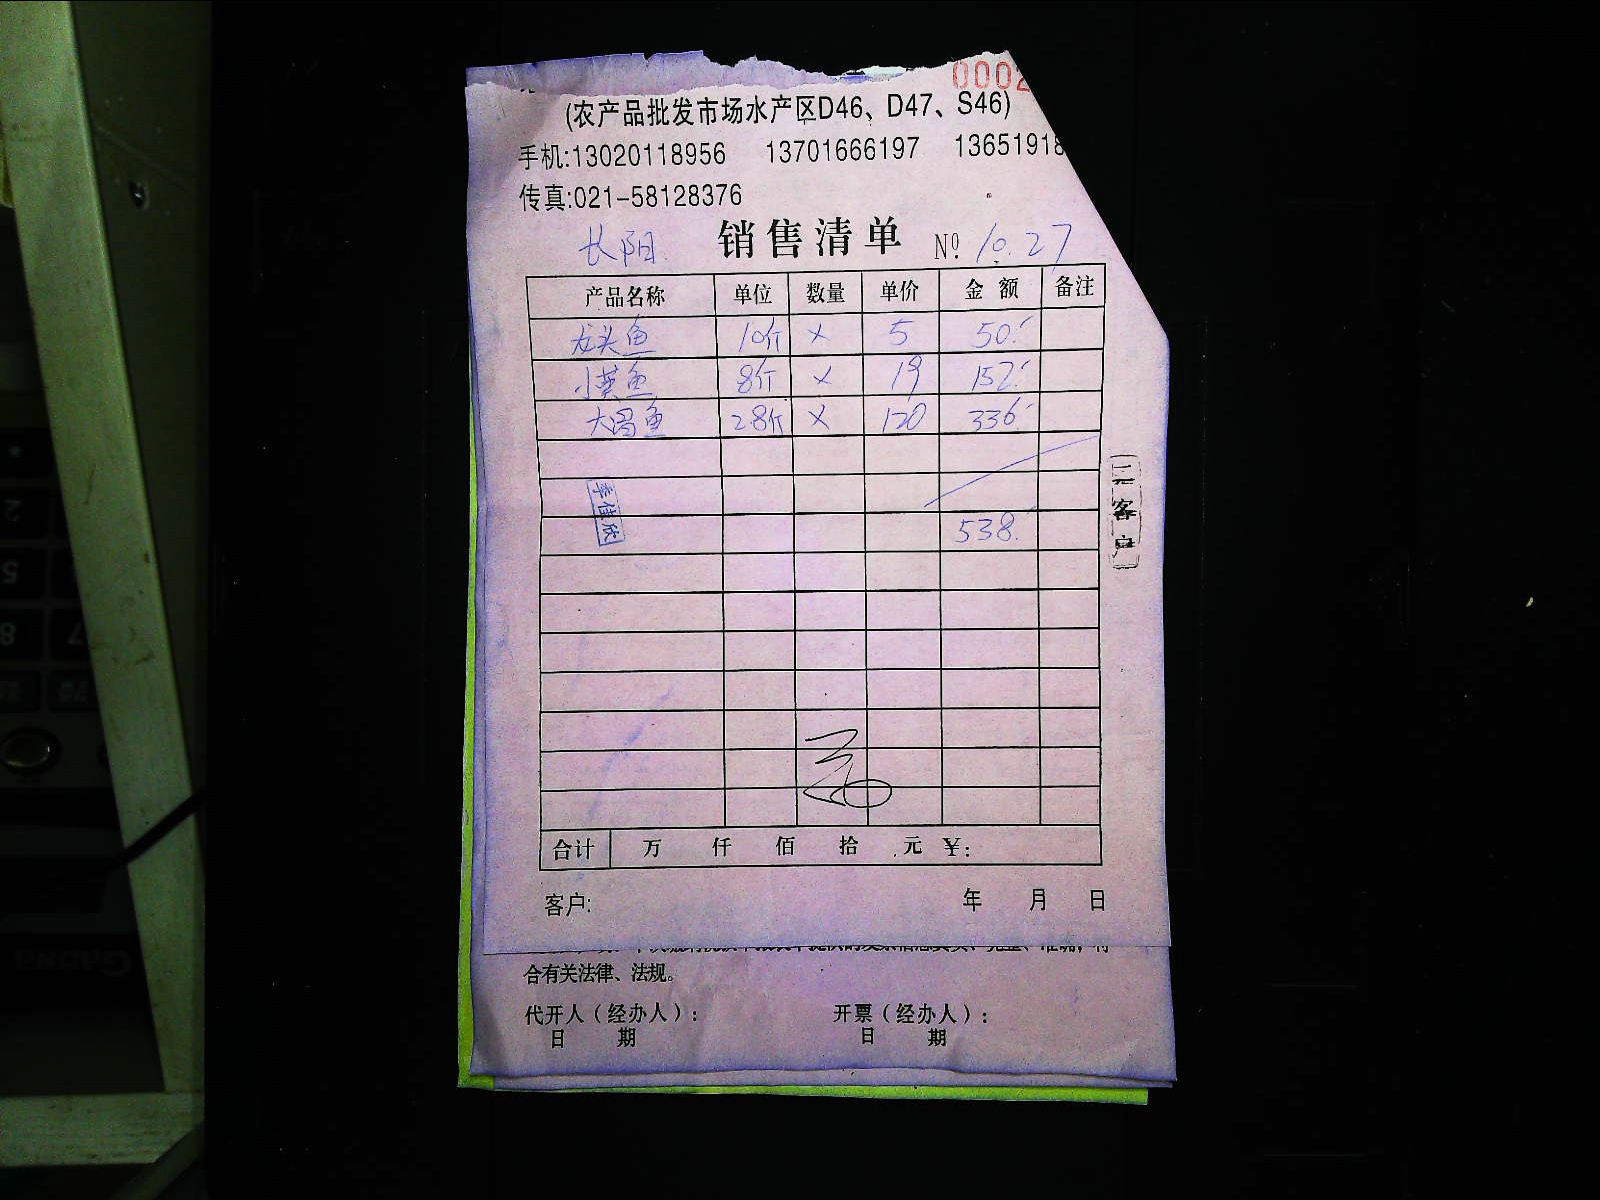 0002
(农产品批发市场水产区D46、D47、S46)
手机:13020118956 13701666197 13651918
传真:021-58128376
长阳 销售清单 № 10.27
产品名称 单位 数量 单价 金额 备注
龙头鱼 10斤 × 5 50.
小黄鱼 8斤 × 19 152.
大昌鱼 2.8斤 × 120 336.
季佳欣
538.
二客户
合计 万 仟 佰 拾 元 ¥:
客户: 年 月 日
合有关法律、法规。
代开人(经办人): 开票(经办人):
日 期 日 期